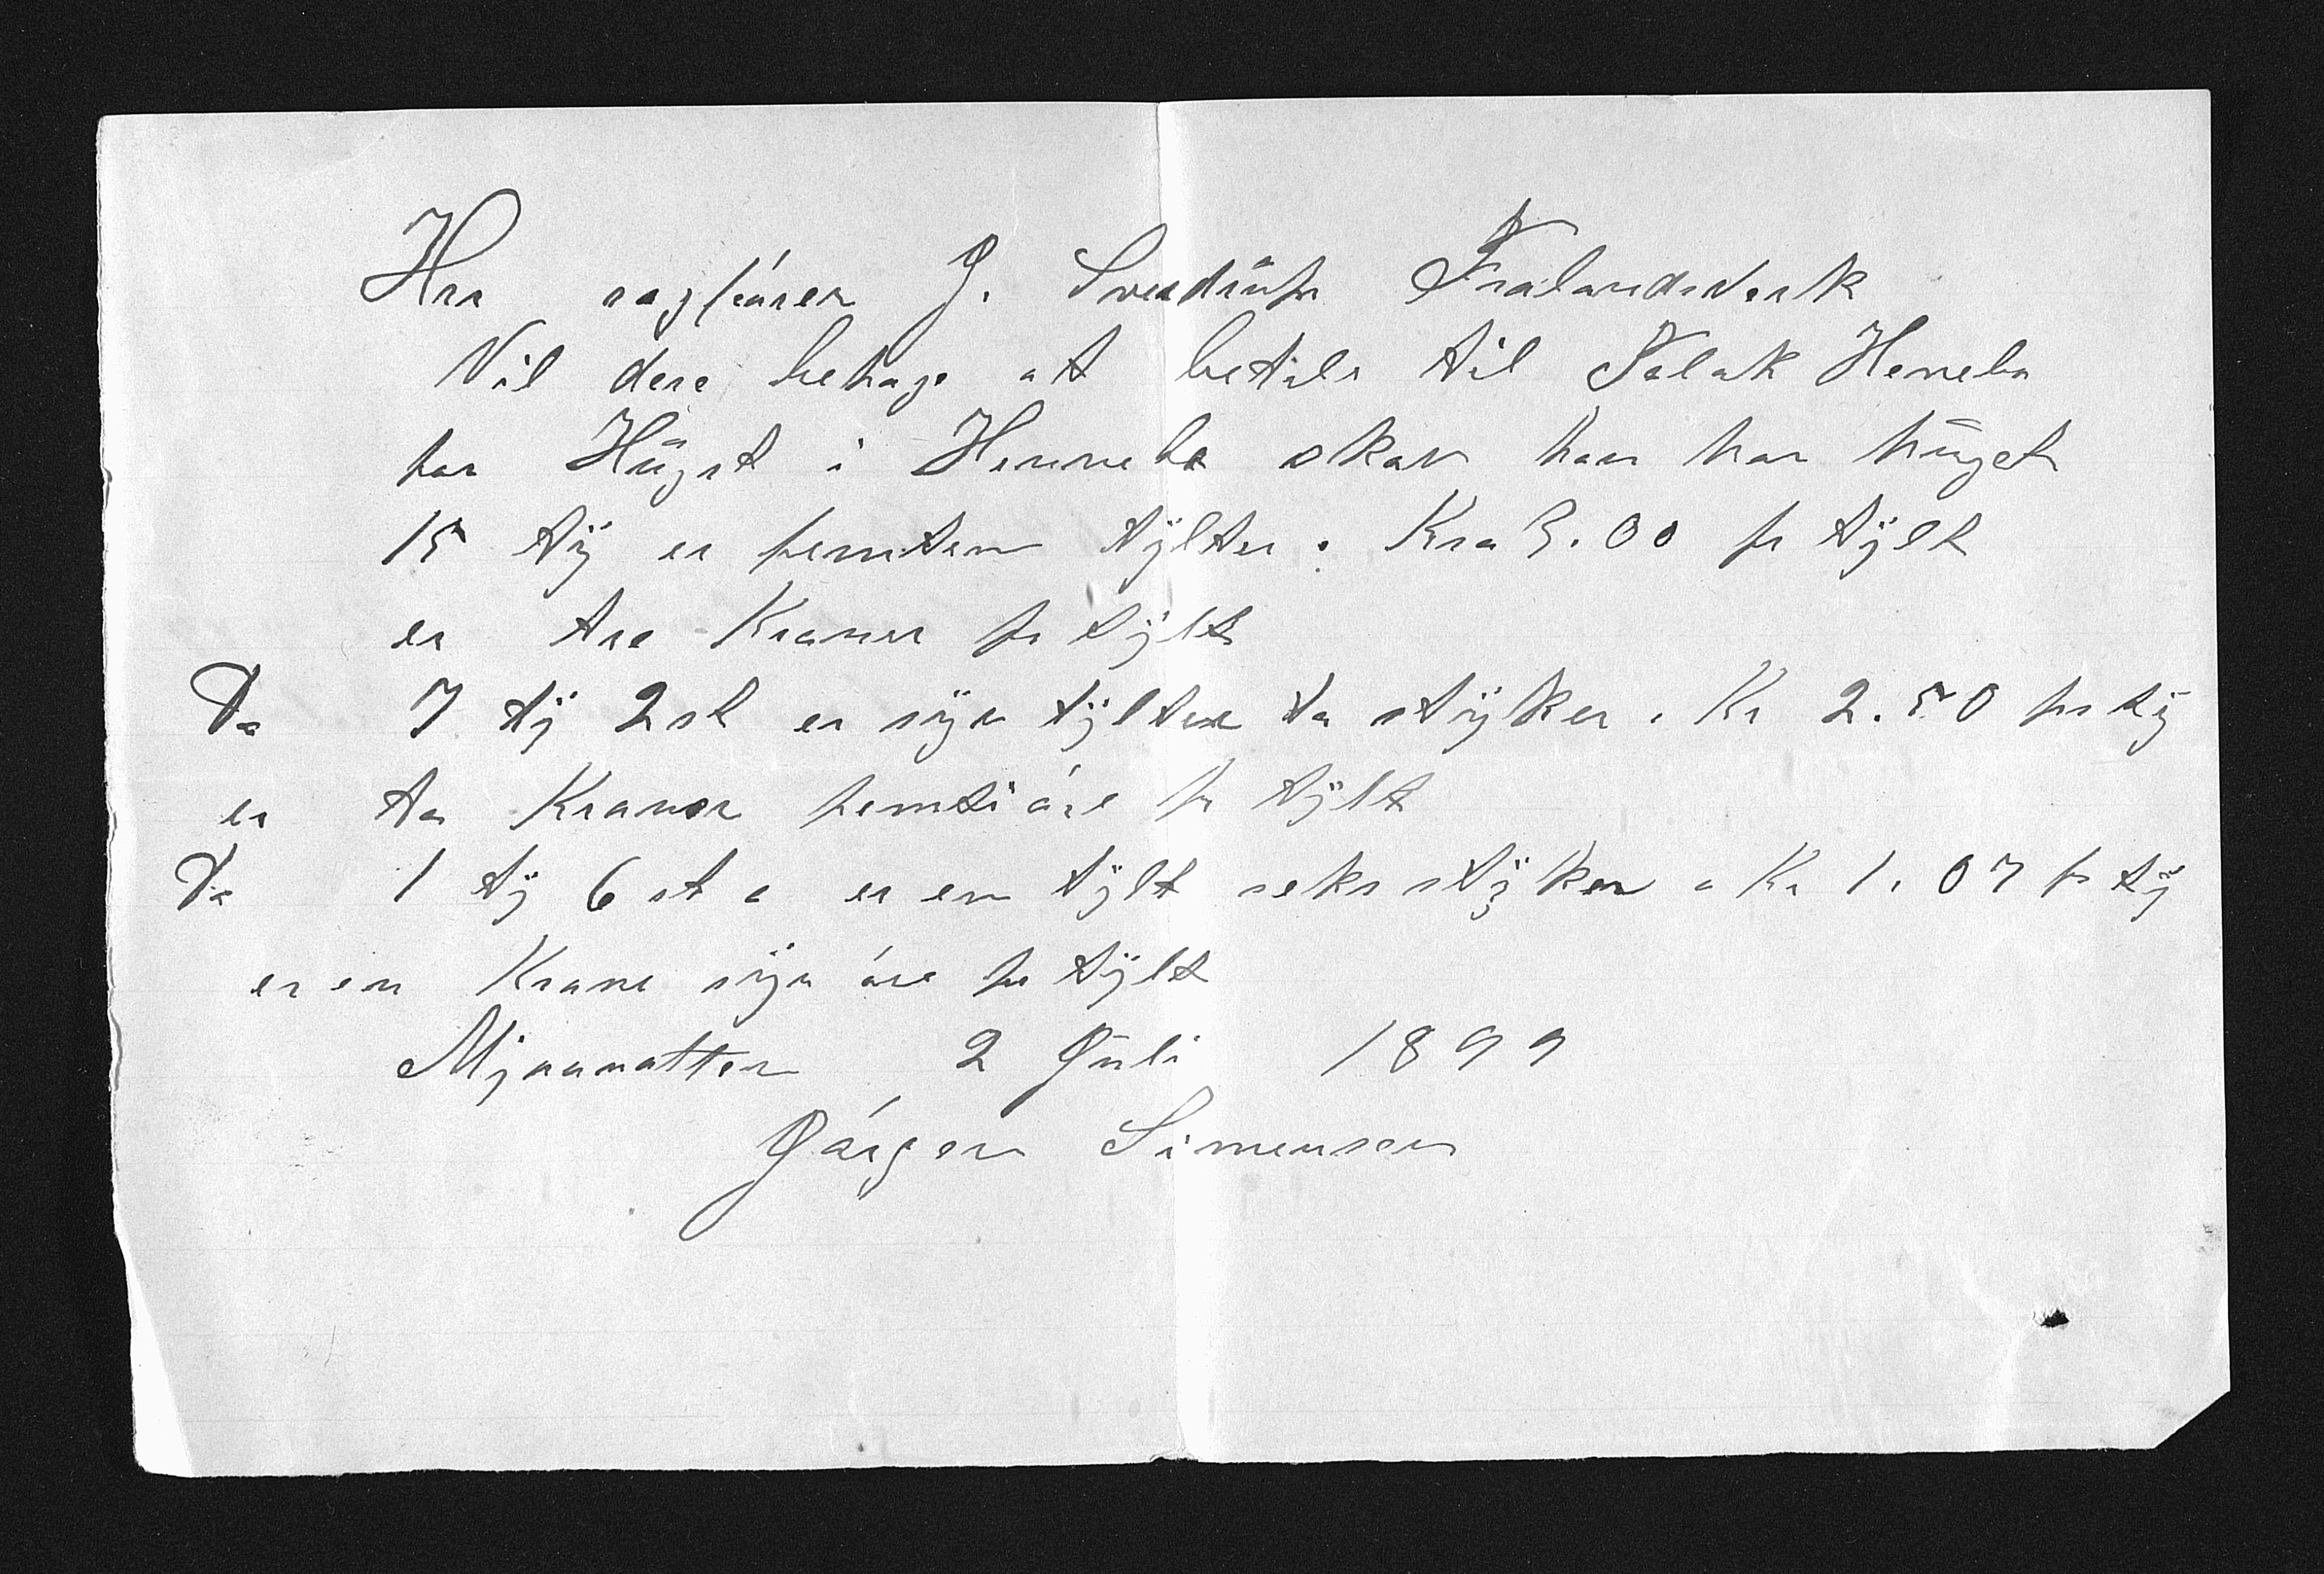 Hrr sagfører J. Sverdrup Frolandsverk
Vil dere behage at betale til Telak Henebu
for Hugst i Hennebu skav han har huget
15 ty er femten tylter. Kra 3.00 pr tylt
er tre Kroner pr tylt
Do 7 ty 2 st er syv tylter to styker. Kr 2.50 pr ty
er to Kroner femti øre pr tylt
Do 1 ty 6 st a er en tylt seks styker a Kr 1.07 pr ty
er en Krone syv øre pr tylt
Mjaavatten 2 Juli 1899
Jørgen Simensen